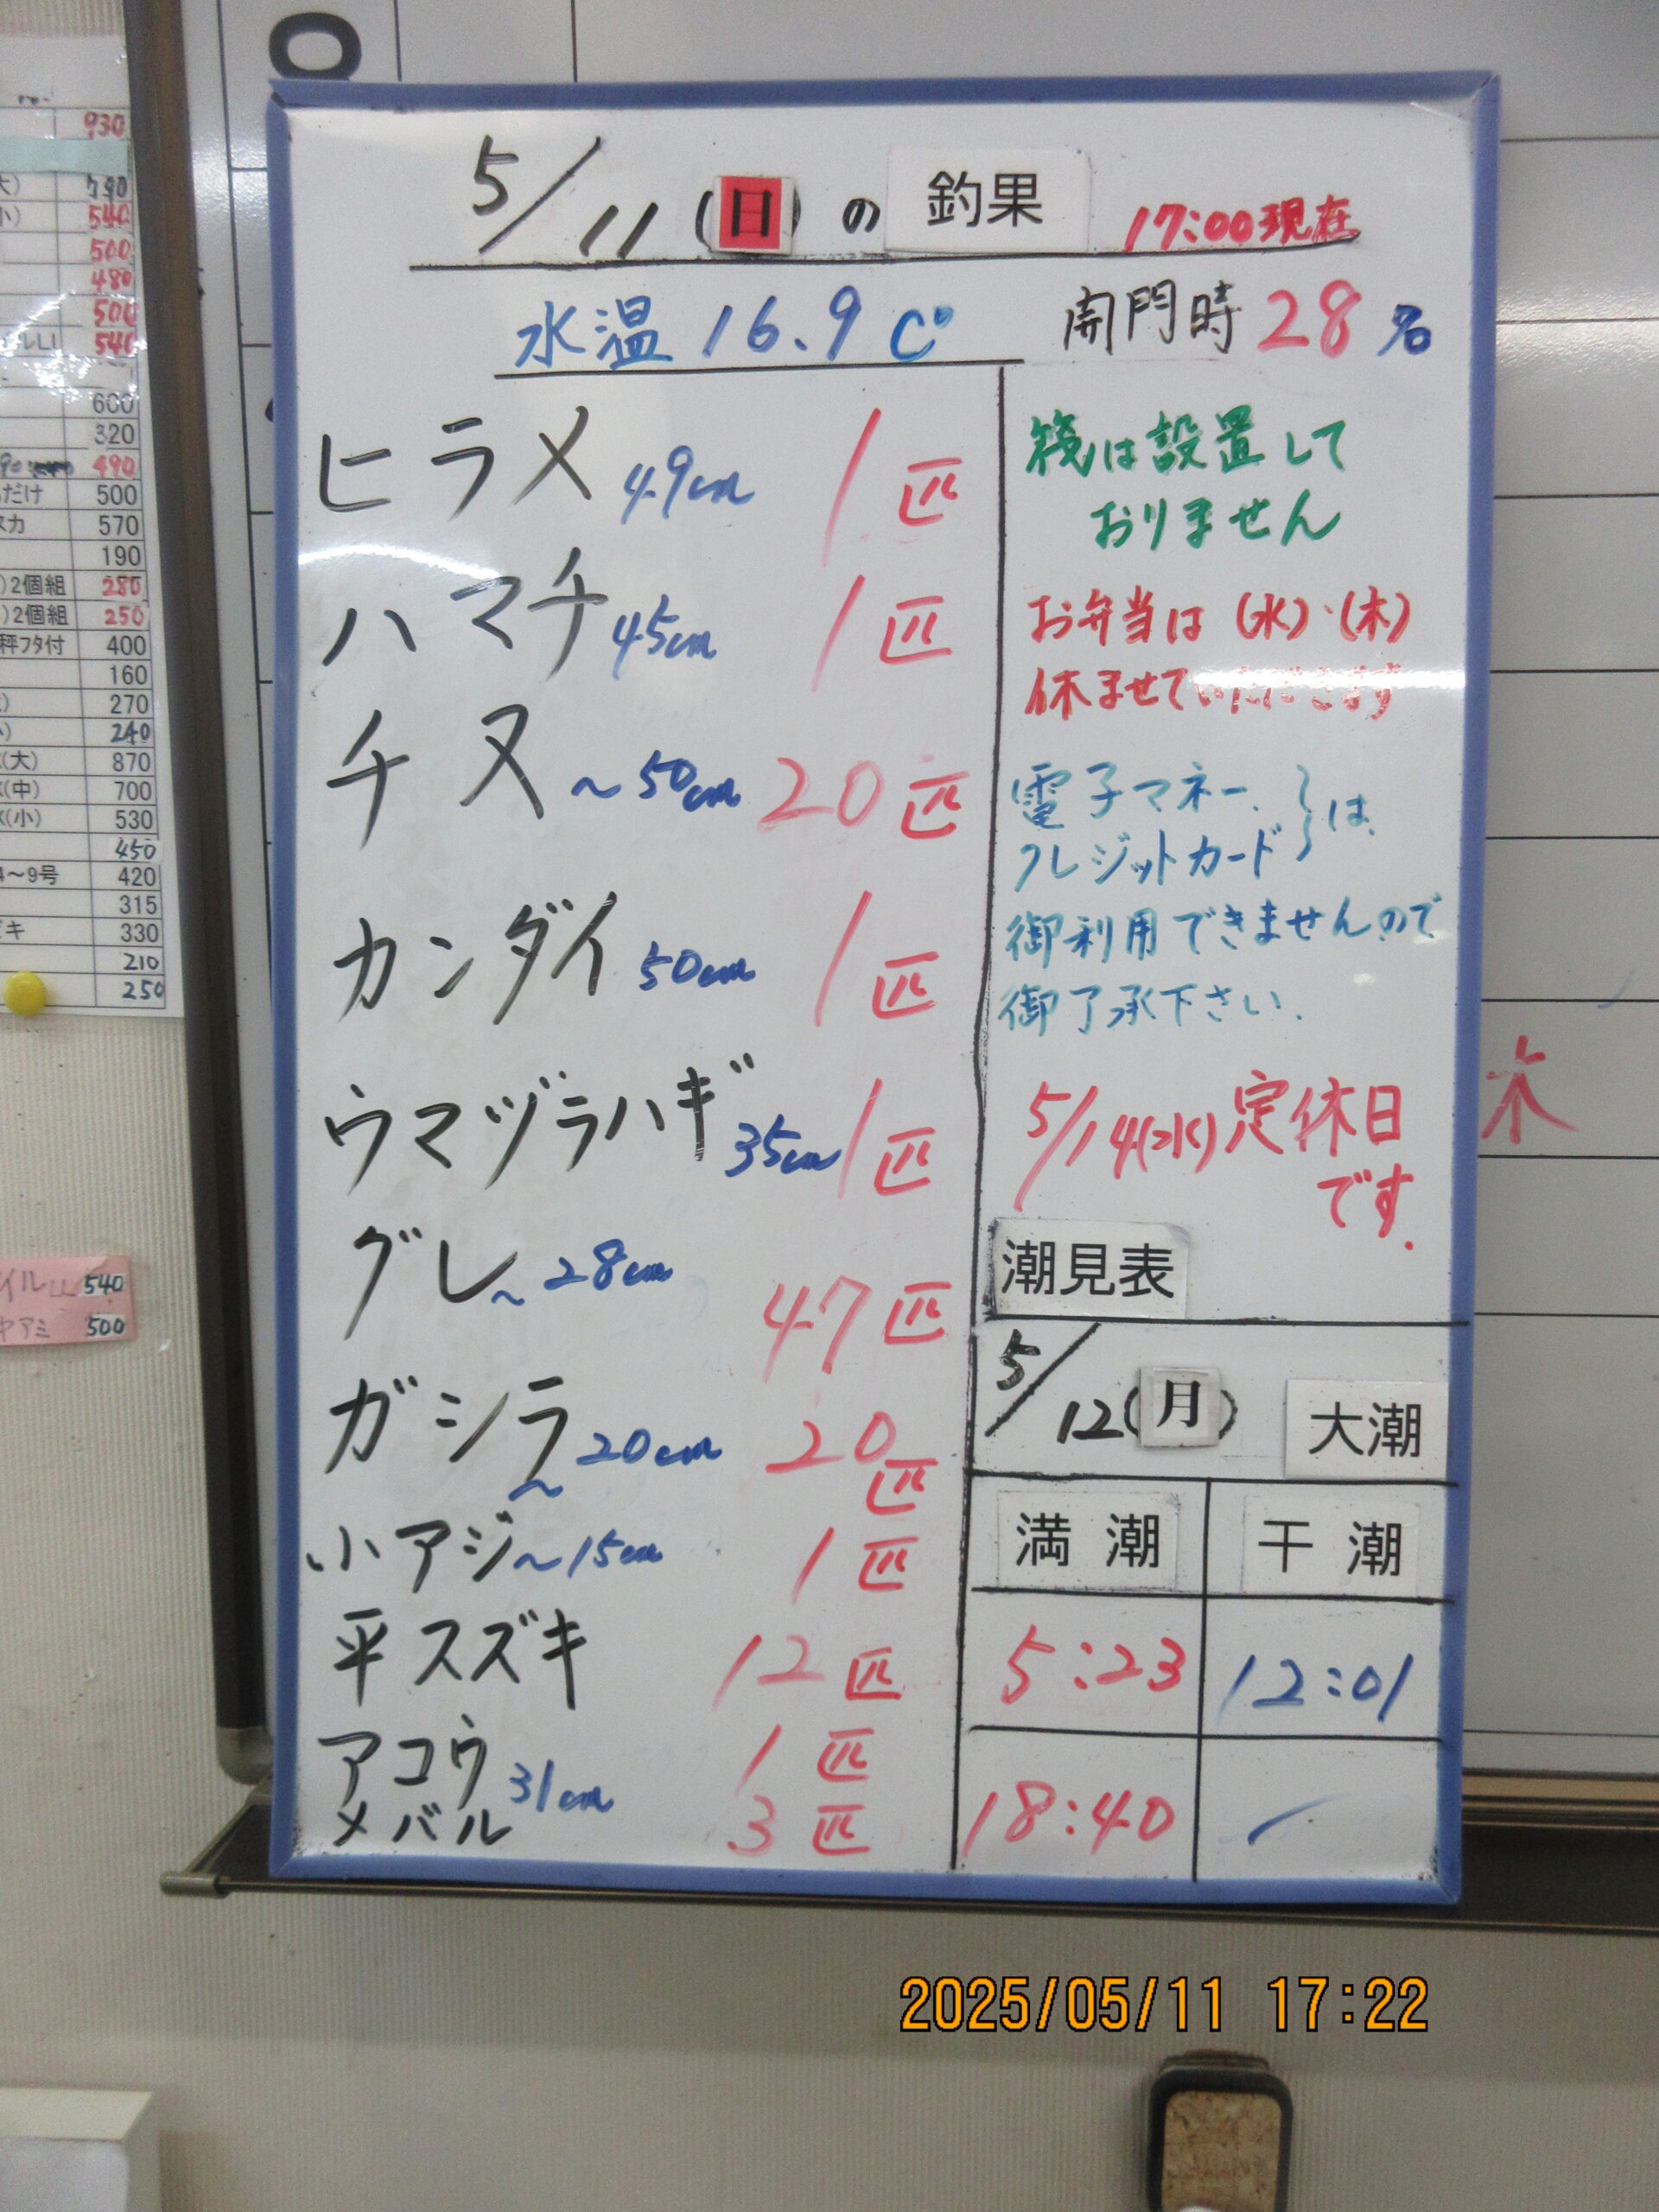 5/11(日)の 釣果 17:00現在
水温 16.9 C° 開門時 28名
ヒラメ 49cm 1匹
ハマチ 45cm 1匹
チヌ ~50cm 20匹
カンダイ 50cm 1匹
ウマヅラハギ 35cm 1匹
グレ ~28cm 47匹
ガシラ ~20cm 20匹
小アジ ~15cm 1匹
平スズキ 12匹
アコウ 31cm 1匹
メバル 3匹
筏は設置して
おりません
お弁当は(水)・(木)
休ませていただきます
電子マネー、
クレジットカード は、
御利用できませんので
御了承下さい.
5/14(水)定休日
です.
潮見表
5/12(月) 大潮
満潮 干潮
5:23 12:01
18:40 /
木
930
790
540
500
480
500
540
600
320
490
だけ 500
570
190
2個組 280
2個組 250
秤フタ付 400
160
270
240
(大) 870
(中) 700
(小) 530
450
4~9号 420
315
キ 330
210
250
イルLL 540
アミ 500
2025/05/11 17:22